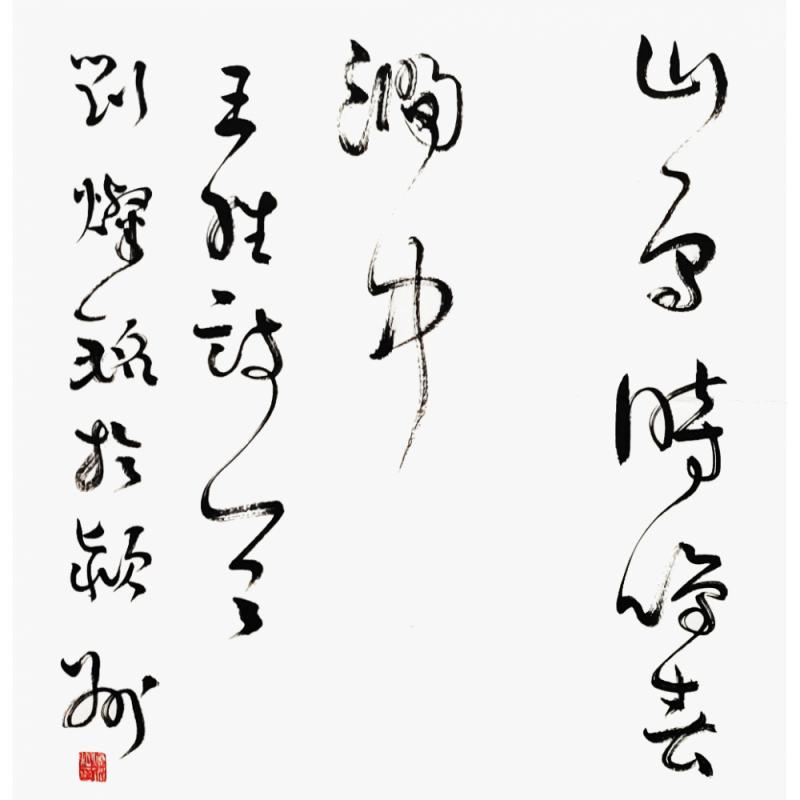 山鳥時鳴春
澗中
王維詩
劉燦銘於潁州